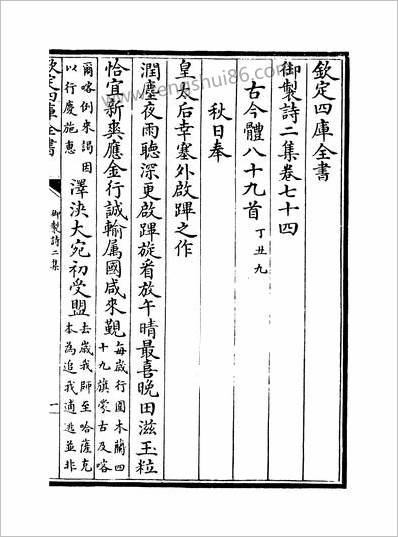 欽定四庫全書
御製詩二集卷七十四
古今體八十九首丁丑九
秋日奉
皇太后幸塞外啟蹕之作
潤塵夜雨聽深更啟蹕旋看放午晴最喜晚田滋玉粒
恰宜新爽應金行誠輸屬國咸來覲每歲行圍木蘭四十九旗蒙古及喀
爾喀例來謁因以行慶施惠澤決大宛初受盟去歲我師至哈薩克本為追我逋逃並非
欽定四庫全書
御製詩二集
一
www.fengshui86.com